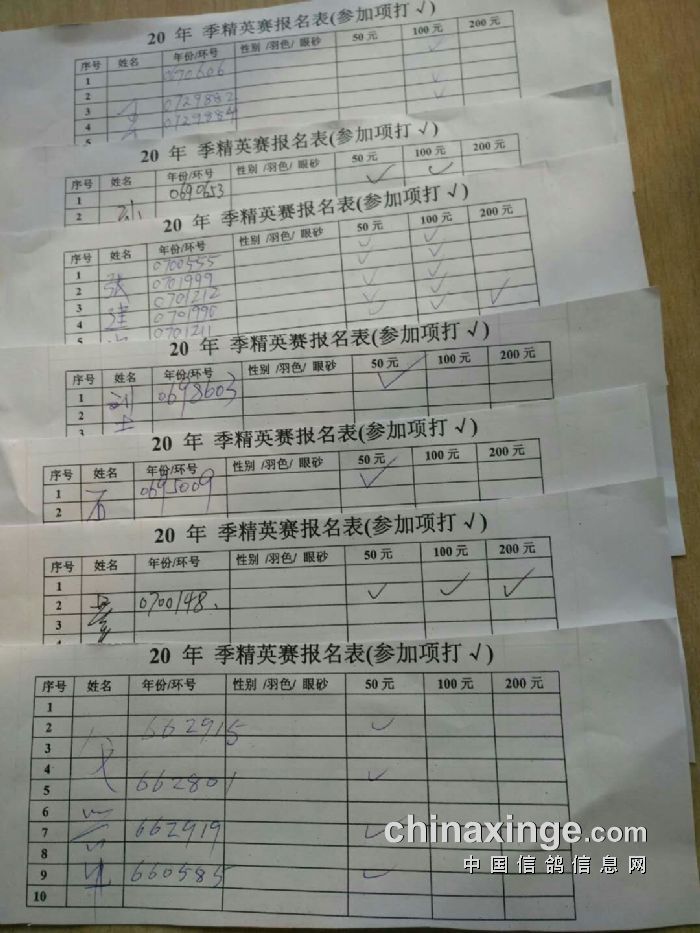 20 年 季精英赛报名表(参加项打 √)
序号 姓名 年份/环号 性别 /羽色/ 眼砂 50 元 100 元 200 元
1 0670606 ✓
2
3 0729882 ✓
4 0729884 ✓
5
20 年 季精英赛报名表(参加项打 √)
序号 姓名 年份/环号 性别 /羽色/ 眼砂 50 元 100 元 200 元
1 0690653 ✓ ✓
2 孙
20 年 季精英赛报名表(参加项打 √)
序号 姓名 年份/环号 性别 /羽色/ 眼砂 50 元 100 元 200 元
1 0700555 ✓ ✓
2 张 0701999 ✓ ✓
3 0701212 ✓ ✓
4 建 0701990 ✓ ✓ ✓
5 0701211
20 年 季精英赛报名表(参加项打 √)
序号 姓名 年份/环号 性别 /羽色/ 眼砂 50 元 100 元 200 元
1 刘 0698603 ✓
2
3
20 年 季精英赛报名表(参加项打 √)
序号 姓名 年份/环号 性别 /羽色/ 眼砂 50 元 100 元 200 元
1 0695009 ✓
2 石
20 年 季精英赛报名表(参加项打 √)
序号 姓名 年份/环号 性别 /羽色/ 眼砂 50 元 100 元 200 元
1
2 0700148 ✓ ✓ ✓
3
20 年 季精英赛报名表(参加项打 √)
序号 姓名 年份/环号 性别 /羽色/ 眼砂 50 元 100 元 200 元
1
2 662915 ✓
3
4
5 662801 ✓
6
7 662919 ✓
8
9 660585 ✓
10
chinaxinge.com
中国信鸽信息网